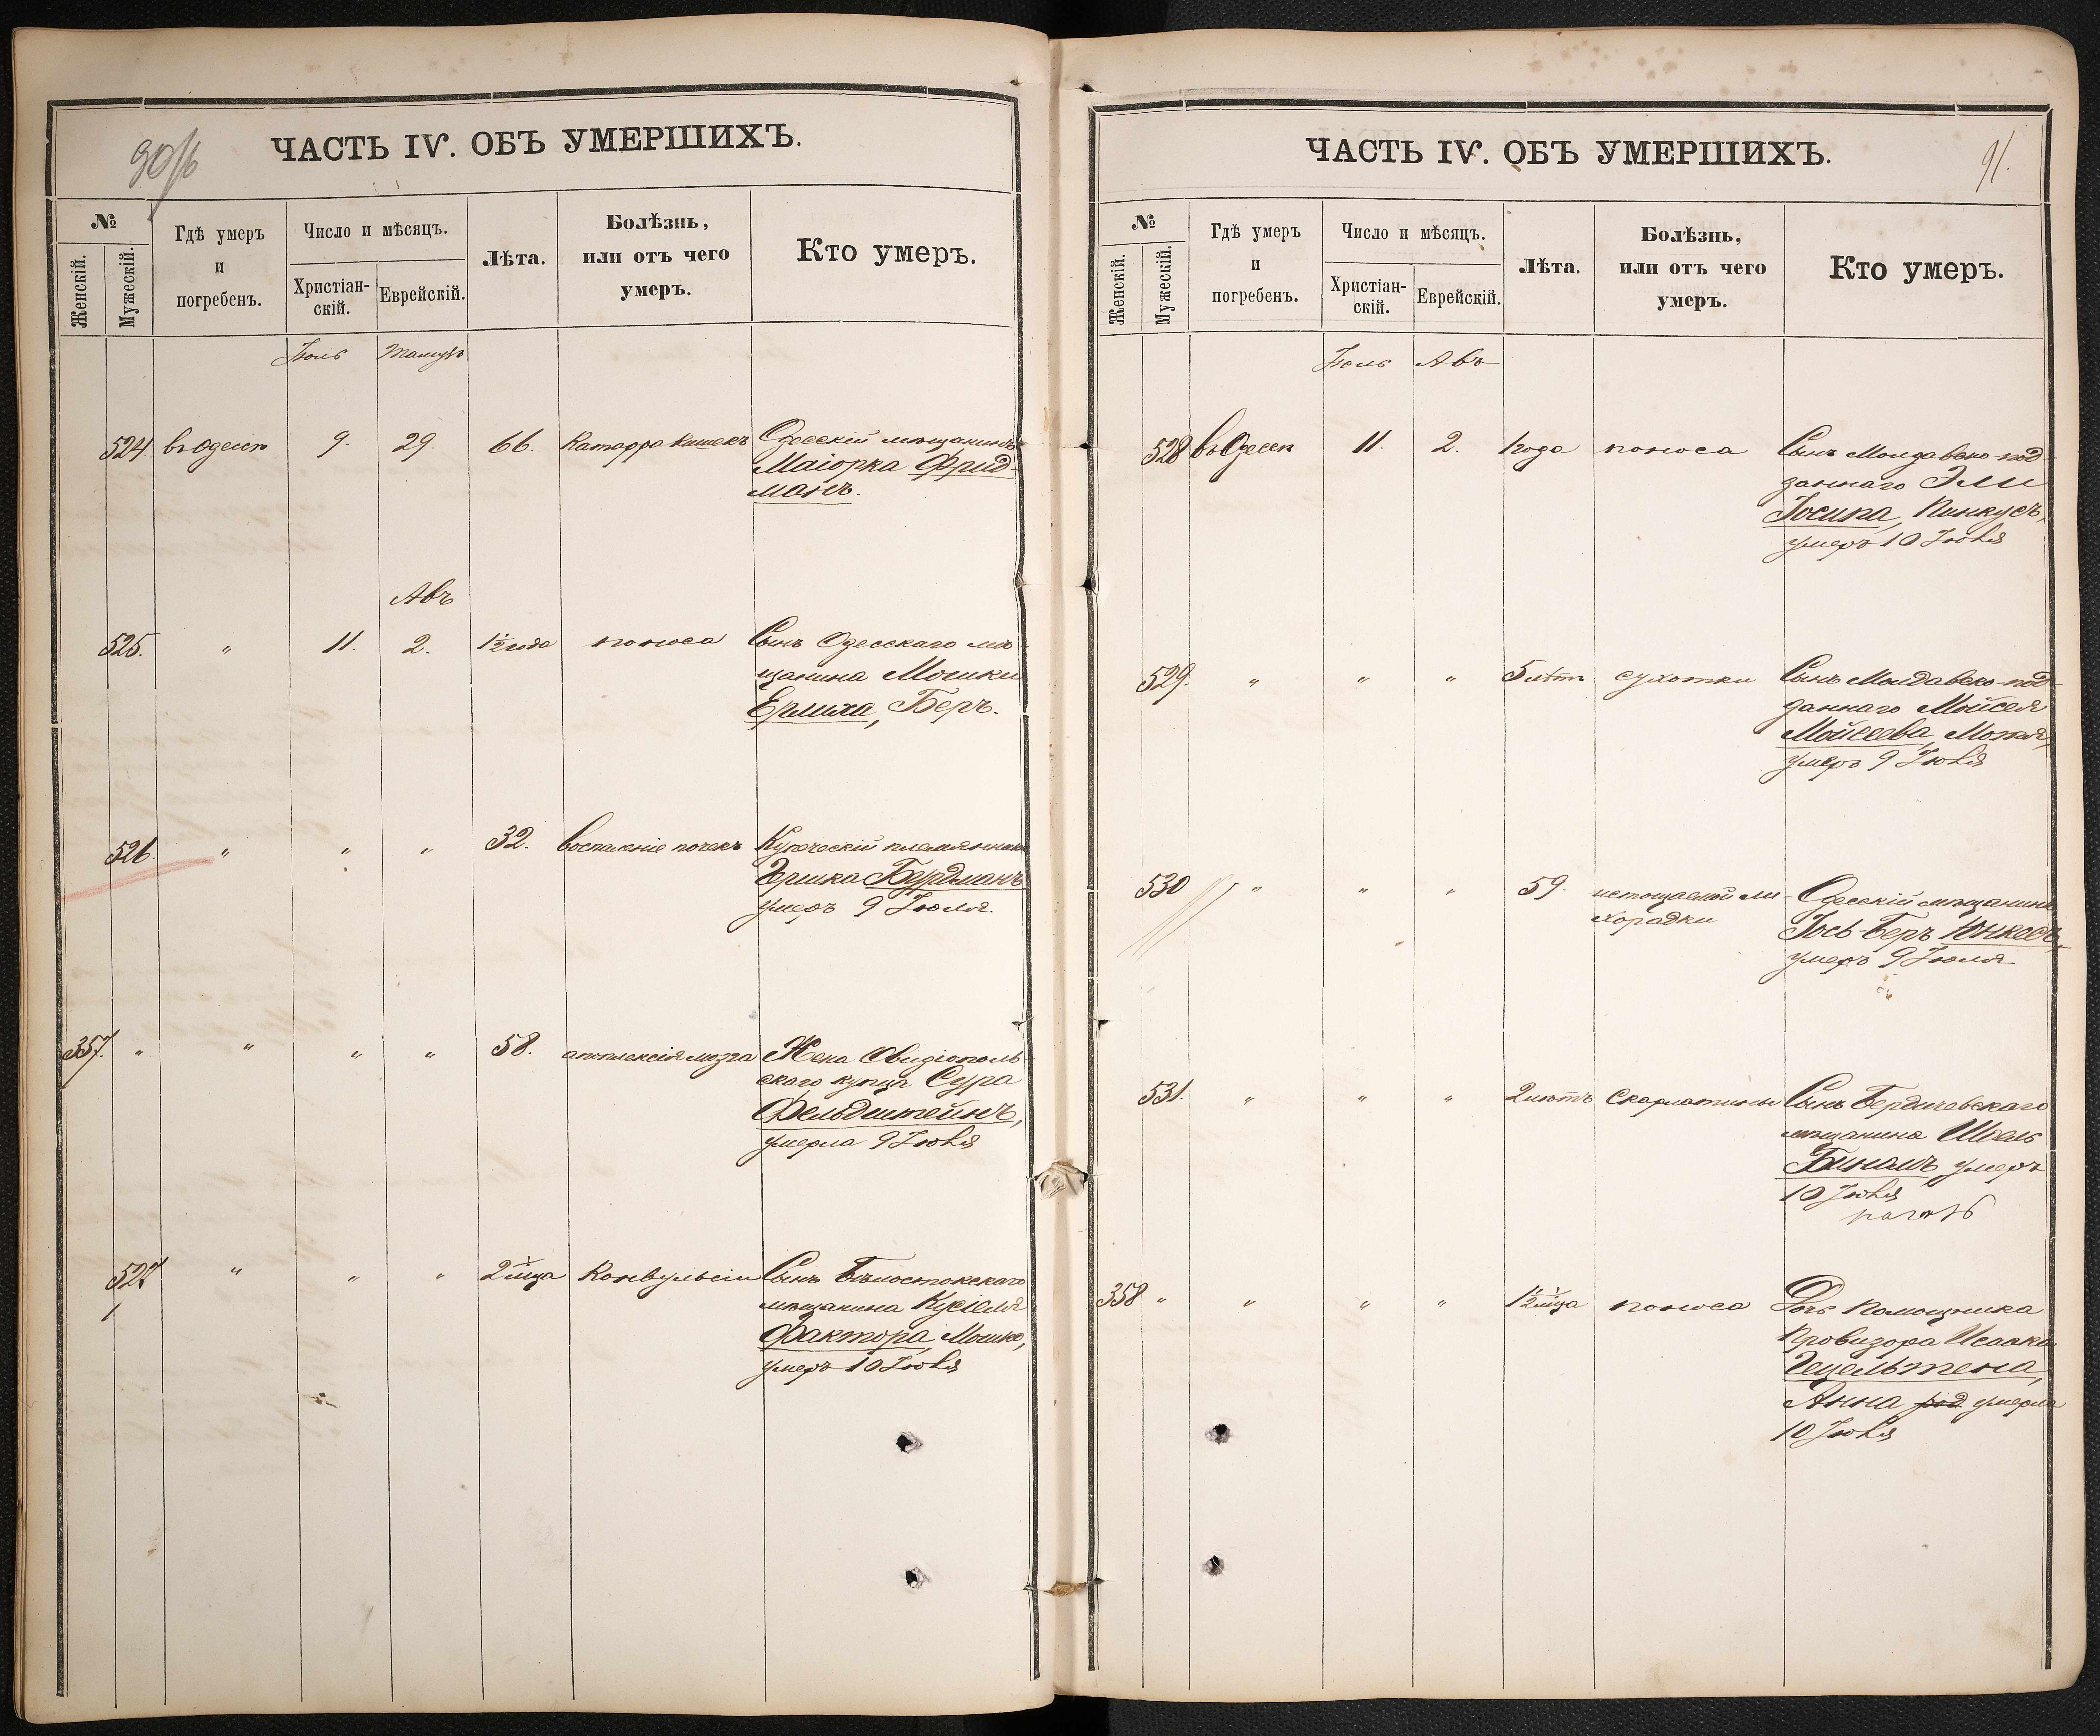 90/б
ЧАСТЬ IV. ОБЪ УМЕРШИХЪ.
№
Женскій.
Мужескій.
Гдѣ умеръ
и
погребенъ.
Число и мѣсяцъ.
Христіан-
скій.
Еврейскій.
Лѣта.
Болѣзнь,
или отъ чего
умеръ.
Кто умеръ.
Іюль Тамузъ
524 въ Одессѣ 9. 29. 66. Катарра кишекъ Одесскій мѣщанинъ
Маіорка Фрид-
манъ.
Авъ
525. " 11. 2. 1½ года поноса Сынъ Одесскаго мѣ-
щанина Мошки
Ермиха, Беръ.
526. " " " 32. воспаленіе почекъ Купеческій племянникъ
Гершка Бурдманъ
умеръ 9 Іюля.
357. " " " " 58. апоплексія мозга Жена Овидіополь-
скаго купца Сура
Фельдштейнъ,
умерла 9 Іюля
527 " " " 2 м-ца Конвульсіи Сынъ Бѣлостокскаго
мѣщанина Кусіеля
Фактора, Мошко,
умеръ 10 Іюля
91.
ЧАСТЬ IV. ОБЪ УМЕРШИХЪ.
№
Женскій.
Мужескій.
Гдѣ умеръ
и
погребенъ.
Число и мѣсяцъ.
Христіан-
скій.
Еврейскій.
Лѣта.
Болѣзнь,
или отъ чего
умеръ.
Кто умеръ.
Іюль Авъ
528 въ Одессѣ 11. 2. 1 года поноса Сынъ Молдавско-под-
даннаго Эли
Іосипа, Пинкусъ,
умеръ 10 Іюля
529. " " " 5 лѣтъ сухотки Сынъ Молдавско-под-
даннаго Мойсея
Мойсеева,
умеръ 9 Іюля
530 " " " 59. истощаемой ли-
хорадки Одесскій мѣщанинъ
Іось-Беръ Юнкесъ,
умеръ 9 Іюля
531. " " " 2 лѣтъ Скарлатины Сынъ Бердичевскаго
мѣщанина
Бинамъ, умеръ
10 Іюля
358 " " " " 1½ м-ца поноса Дочь Помощника
Провизора Исаака
Гецельтена,
Анна род умерла
10 Іюля